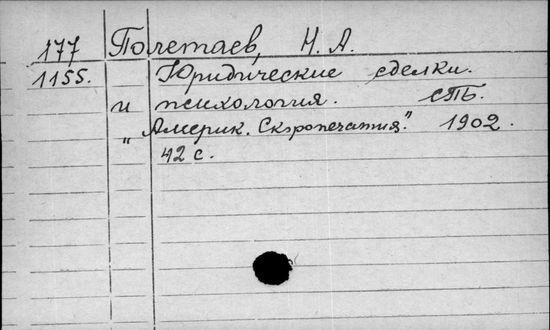 177 Полетаев, Н. А.
1155. Юридические сделки.
и психология. СПБ.
„Америк. Скоропечатня." 1902.
42 с.